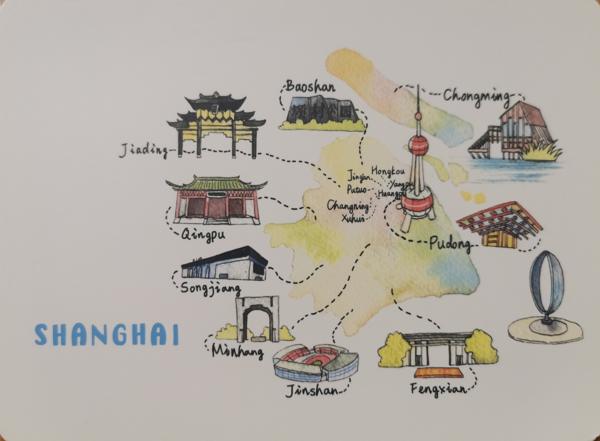 Baoshan
Chongming
Jiading
Hongkou
Jing'an
Putuo
Yangpu
Huangpu
Changning
Xuhui
Qingpu
Pudong
Songjiang
SHANGHAI
Minhang
Jinshan
Fengxian